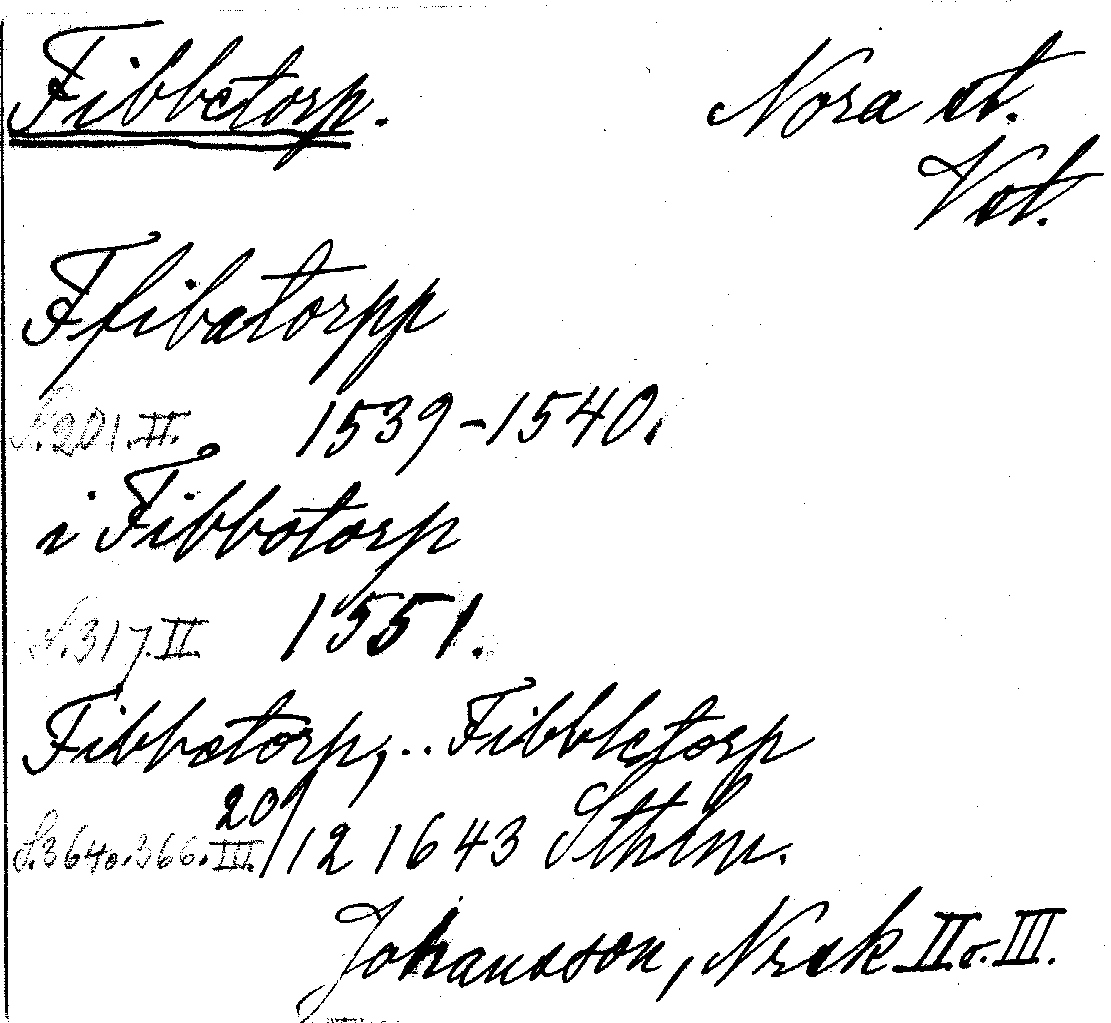 Fibbetorp. Nora st.
Vst.
Ffibatorpp
S.201.II. 1539-1540.
i Fibbotorp
S.317.II 1551.
Fibbetorp, .. Fibbletorp
20/12 1643 Sthlm.
S.364o.366.III.
Johansson, Nrsk II o. III.